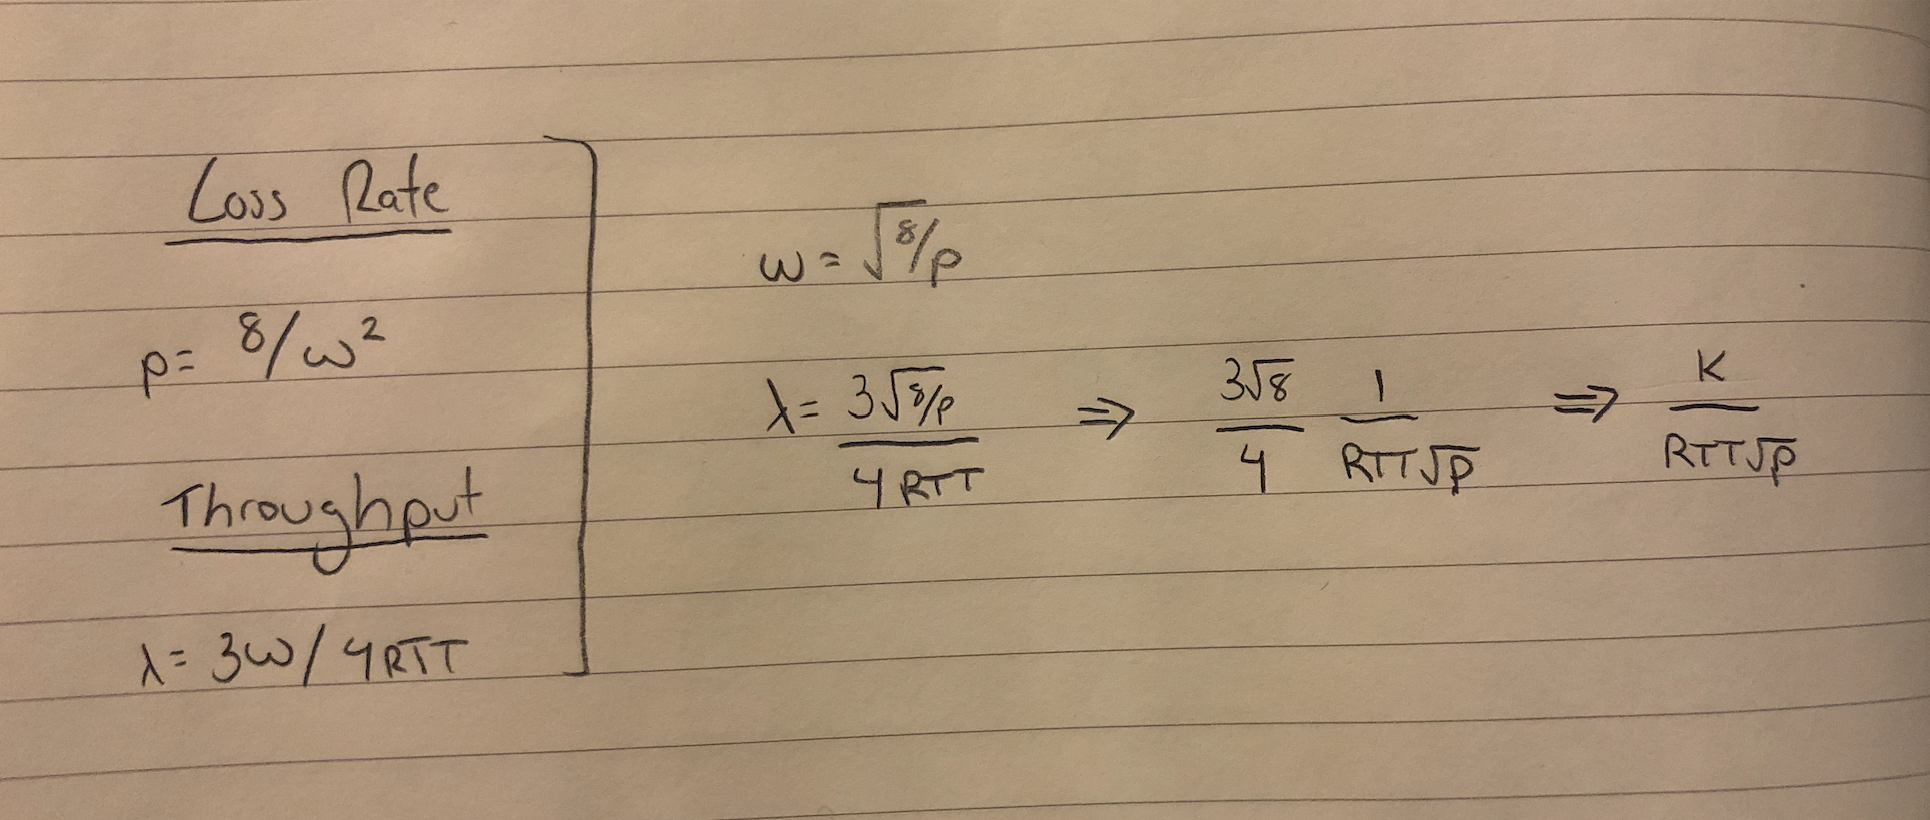 Loss Rate
p= 8/w²
Throughput
λ= 3w/4RTT
w=√8/p
λ= 3√8/p / 4RTT ⇒ 3√8 / 4 1 / RTT√p ⇒ K / RTT√p